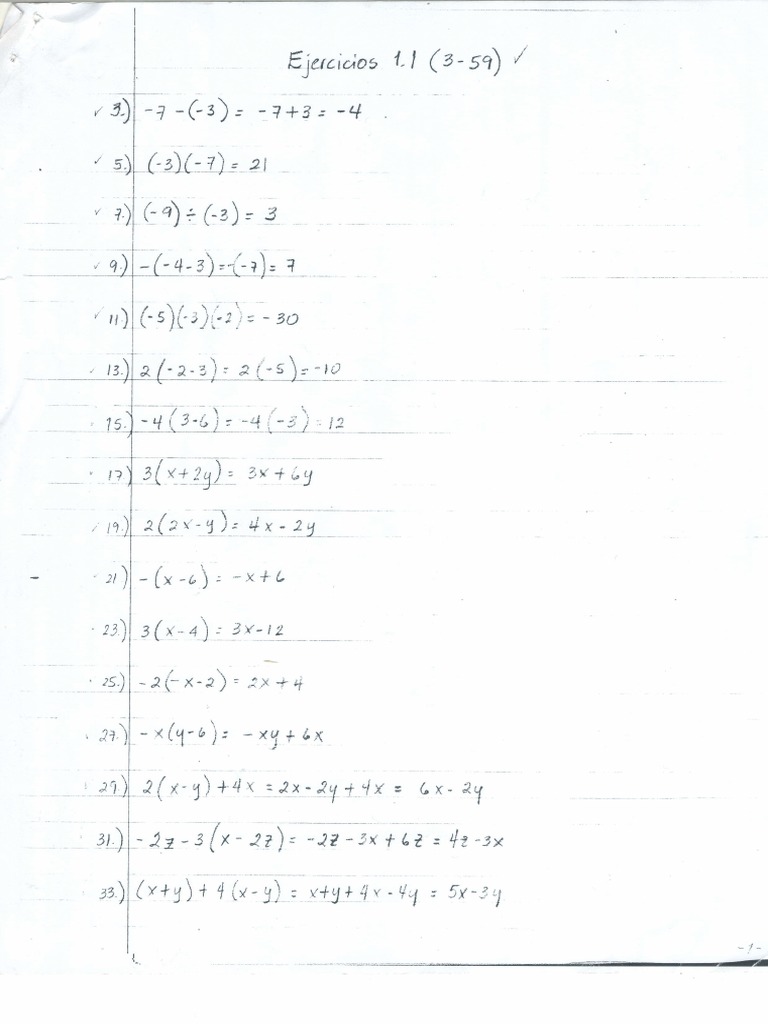 Ejercicios 1.1 (3-59) ✓
✓ 3.) -7 - (-3) = -7+3 = -4
✓ 5.) (-3)(-7) = 21
✓ 7.) (-9) ÷ (-3) = 3
✓ 9.) -(-4-3) = -(-7) = 7
✓ 11.) (-5)(-3)(-2) = -30
13.) 2(-2-3) = 2(-5) = -10
15.) -4(3-6) = -4(-3) = 12
17.) 3(x+2y) = 3x+6y
19.) 2(2x-y) = 4x-2y
21.) -(x-6) = -x+6
23.) 3(x-4) = 3x-12
25.) -2(-x-2) = 2x+4
27.) -x(y-6) = -xy+6x
29.) 2(x-y)+4x = 2x-2y+4x = 6x-2y
31.) -2z-3(x-2z) = -2z-3x+6z = 4z-3x
33.) (x+y)+4(x-y) = x+y+4x-4y = 5x-3y
-1-